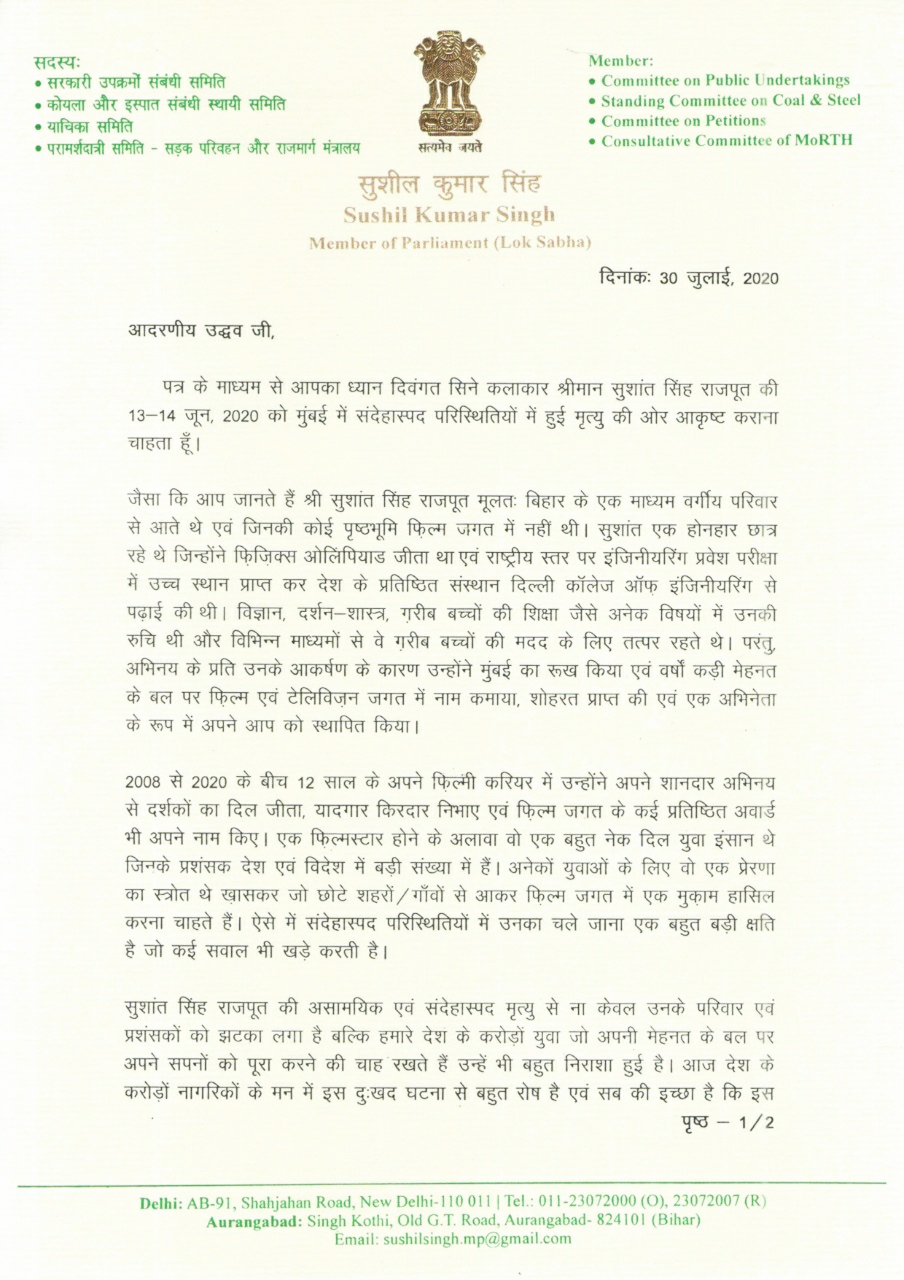 सदस्यः
• सरकारी उपक्रमों संबंधी समिति
• कोयला और इस्पात संबंधी स्थायी समिति
• याचिका समिति
• परामर्शदात्री समिति - सड़क परिवहन और राजमार्ग मंत्रालय
सत्यमेव जयते
Member:
• Committee on Public Undertakings
• Standing Committee on Coal & Steel
• Committee on Petitions
• Consultative Committee of MoRTH
सुशील कुमार सिंह
Sushil Kumar Singh
Member of Parliament (Lok Sabha)
दिनांकः 30 जुलाई, 2020
आदरणीय उद्धव जी,
पत्र के माध्यम से आपका ध्यान दिवंगत सिने कलाकार श्रीमान सुशांत सिंह राजपूत की
13–14 जून, 2020 को मुंबई में संदेहास्पद परिस्थितियों में हुई मृत्यु की ओर आकृष्ट कराना
चाहता हूँ।
जैसा कि आप जानते हैं श्री सुशांत सिंह राजपूत मूलतः बिहार के एक माध्यम वर्गीय परिवार
से आते थे एवं जिनकी कोई पृष्ठभूमि फ़िल्म जगत में नहीं थी। सुशांत एक होनहार छात्र
रहे थे जिन्होंने फ़िज़िक्स ओलिंपियाड जीता था एवं राष्ट्रीय स्तर पर इंजिनीयरिंग प्रवेश परीक्षा
में उच्च स्थान प्राप्त कर देश के प्रतिष्ठित संस्थान दिल्ली कॉलेज ऑफ़ इंजिनीयरिंग से
पढ़ाई की थी। विज्ञान, दर्शन–शास्त्र, ग़रीब बच्चों की शिक्षा जैसे अनेक विषयों में उनकी
रुचि थी और विभिन्न माध्यमों से वे ग़रीब बच्चों की मदद के लिए तत्पर रहते थे। परंतु,
अभिनय के प्रति उनके आकर्षण के कारण उन्होंने मुंबई का रूख किया एवं वर्षों कड़ी मेहनत
के बल पर फ़िल्म एवं टेलिविज़न जगत में नाम कमाया, शोहरत प्राप्त की एवं एक अभिनेता
के रूप में अपने आप को स्थापित किया।
2008 से 2020 के बीच 12 साल के अपने फ़िल्मी करियर में उन्होंने अपने शानदार अभिनय
से दर्शकों का दिल जीता, यादगार किरदार निभाए एवं फ़िल्म जगत के कई प्रतिष्ठित अवार्ड
भी अपने नाम किए। एक फ़िल्मस्टार होने के अलावा वो एक बहुत नेक दिल युवा इंसान थे
जिनके प्रशंसक देश एवं विदेश में बड़ी संख्या में हैं। अनेकों युवाओं के लिए वो एक प्रेरणा
का स्त्रोत थे ख़ासकर जो छोटे शहरों/गाँवों से आकर फ़िल्म जगत में एक मुक़ाम हासिल
करना चाहते हैं। ऐसे में संदेहास्पद परिस्थितियों में उनका चले जाना एक बहुत बड़ी क्षति
है जो कई सवाल भी खड़े करती है।
सुशांत सिंह राजपूत की असामयिक एवं संदेहास्पद मृत्यु से ना केवल उनके परिवार एवं
प्रशंसकों को झटका लगा है बल्कि हमारे देश के करोड़ों युवा जो अपनी मेहनत के बल पर
अपने सपनों को पूरा करने की चाह रखते हैं उन्हें भी बहुत निराशा हुई है। आज देश के
करोड़ों नागरिकों के मन में इस दुःखद घटना से बहुत रोष है एवं सब की इच्छा है कि इस
पृष्ठ – 1/2
Delhi: AB-91, Shahjahan Road, New Delhi-110 011 | Tel.: 011-23072000 (O), 23072007 (R)
Aurangabad: Singh Kothi, Old G.T. Road, Aurangabad- 824101 (Bihar)
Email: sushilsingh.mp@gmail.com